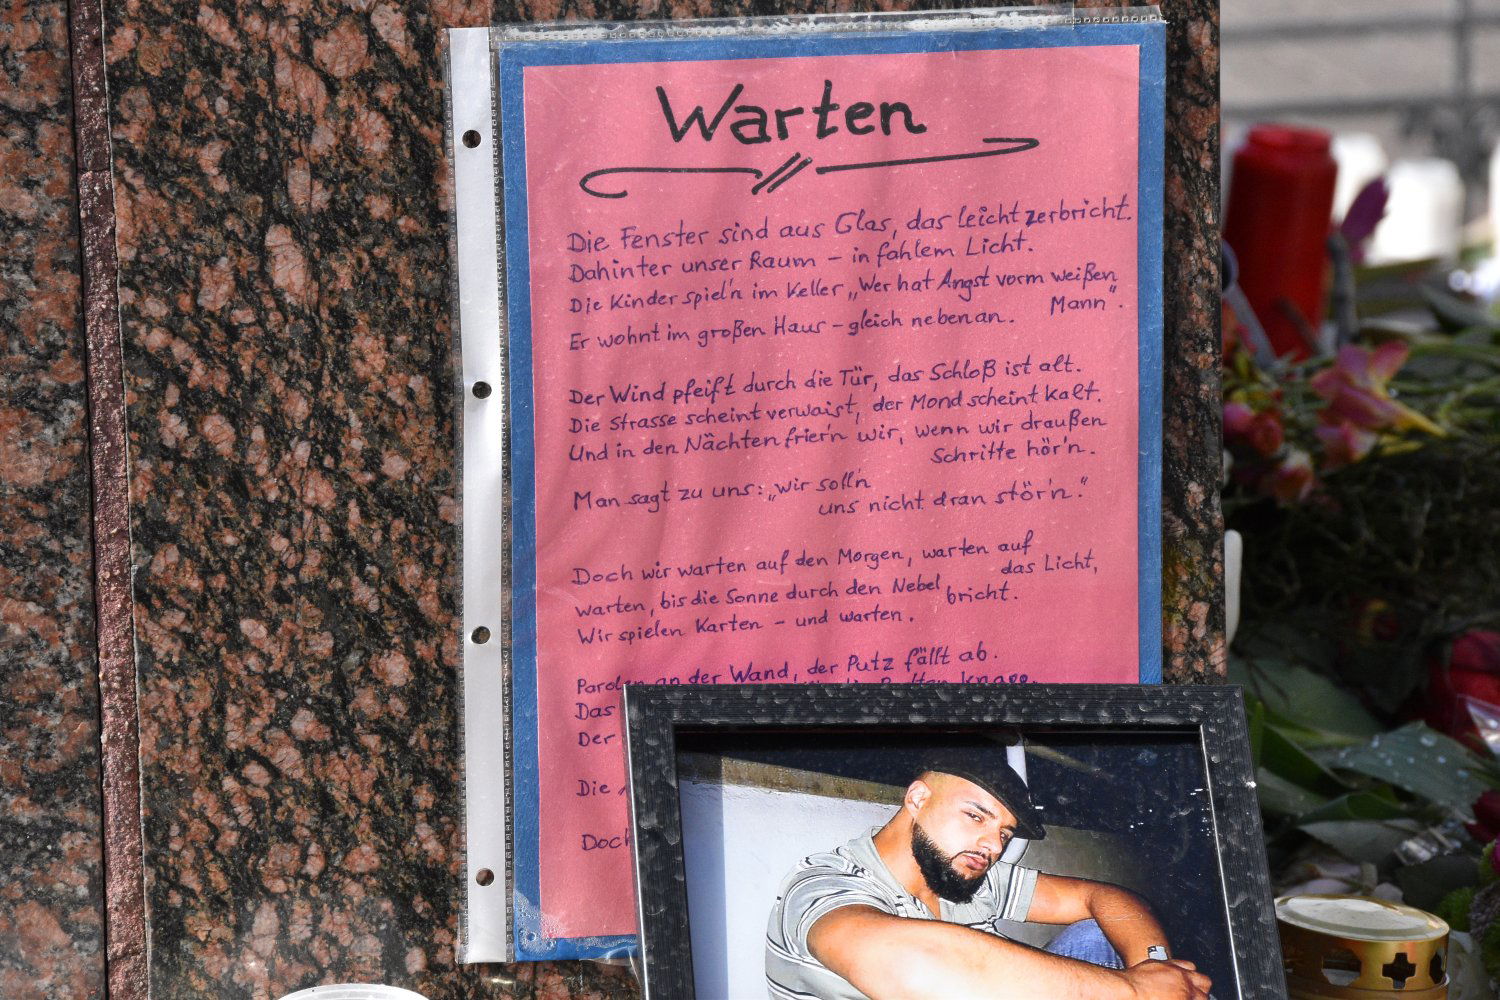 Warten
Die Fenster sind aus Glas, das leicht zerbricht.
Dahinter unser Raum – in fahlem Licht.
Die Kinder spiel'n im Keller „Wer hat Angst vorm weißen
Mann".
Er wohnt im großen Haus – gleich nebenan.
Der Wind pfeift durch die Tür, das Schloß ist alt.
Die Strasse scheint verwaist, der Mond scheint kalt.
Und in den Nächten frier'n wir, wenn wir draußen
Schritte hör'n.
Man sagt zu uns: „wir soll'n
uns nicht dran stör'n."
Doch wir warten auf den Morgen, warten auf
das Licht,
warten, bis die Sonne durch den Nebel
bricht.
Wir spielen Karten – und warten.
Parolen an der Wand, der Putz fällt ab.
Das
Der
Die
Doch